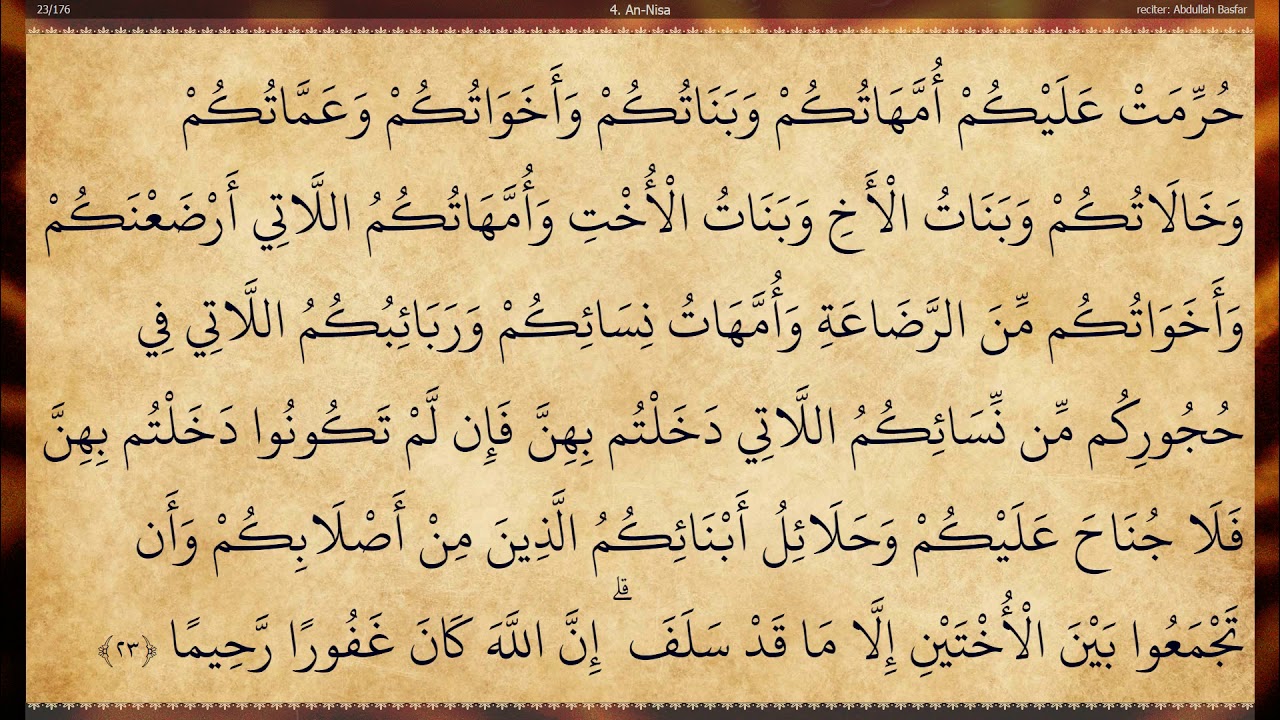 23/176
4. An-Nisa
reciter: Abdullah Basfar
حُرِّمَتْ عَلَيْكُمْ أُمَّهَاتُكُمْ وَبَنَاتُكُمْ وَأَخَوَاتُكُمْ وَعَمَّاتُكُمْ
وَخَالَاتُكُمْ وَبَنَاتُ الْأَخِ وَبَنَاتُ الْأُخْتِ وَأُمَّهَاتُكُمُ اللَّاتِي أَرْضَعْنَكُمْ
وَأَخَوَاتُكُم مِّنَ الرَّضَاعَةِ وَأُمَّهَاتُ نِسَائِكُمْ وَرَبَائِبُكُمُ اللَّاتِي فِي
حُجُورِكُم مِّن نِّسَائِكُمُ اللَّاتِي دَخَلْتُم بِهِنَّ فَإِن لَّمْ تَكُونُوا دَخَلْتُم بِهِنَّ
فَلَا جُنَاحَ عَلَيْكُمْ وَحَلَائِلُ أَبْنَائِكُمُ الَّذِينَ مِنْ أَصْلَابِكُمْ وَأَن
تَجْمَعُوا بَيْنَ الْأُخْتَيْنِ إِلَّا مَا قَدْ سَلَفَ ۗ إِنَّ اللَّهَ كَانَ غَفُورًا رَّحِيمًا ﴿٢٣﴾